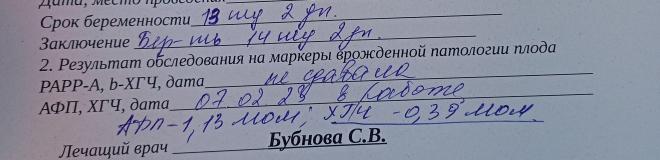 Дата, место проведения
Срок беременности 13 нед 2 дн.
Заключение Бер-ть 14 нед 2 дн.
2. Результат обследования на маркеры врожденной патологии плода
РАРР-А, b-ХГЧ, дата не сдавала
АФП, ХГЧ, дата 07.02.23 в работе
АФП-1,13 МОМ; ХГЧ -0,39 МОМ.
Лечащий врач Бубнова С.В.